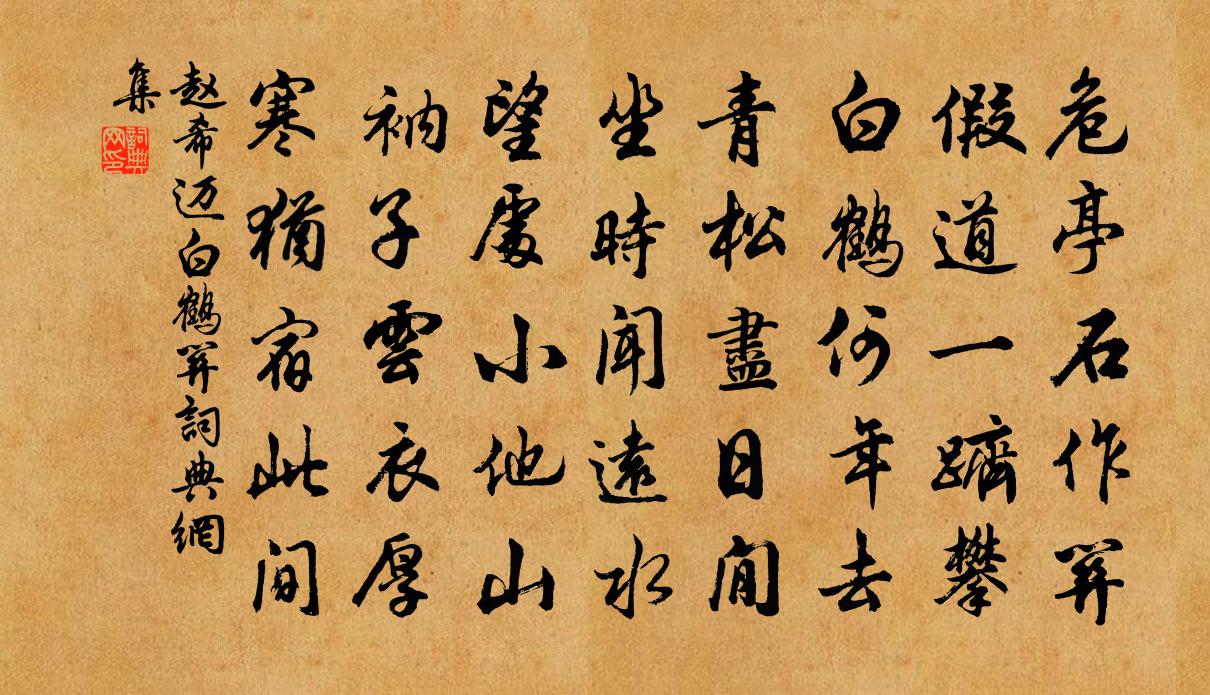 危亭石作关
假道一躋攀
白鶴何年去
青松盡日閒
坐時聞遠水
望處小他山
衲子雲衣厚
寒猶宿此間
赵希迈白鶴关詞典網
集
詞典
网印